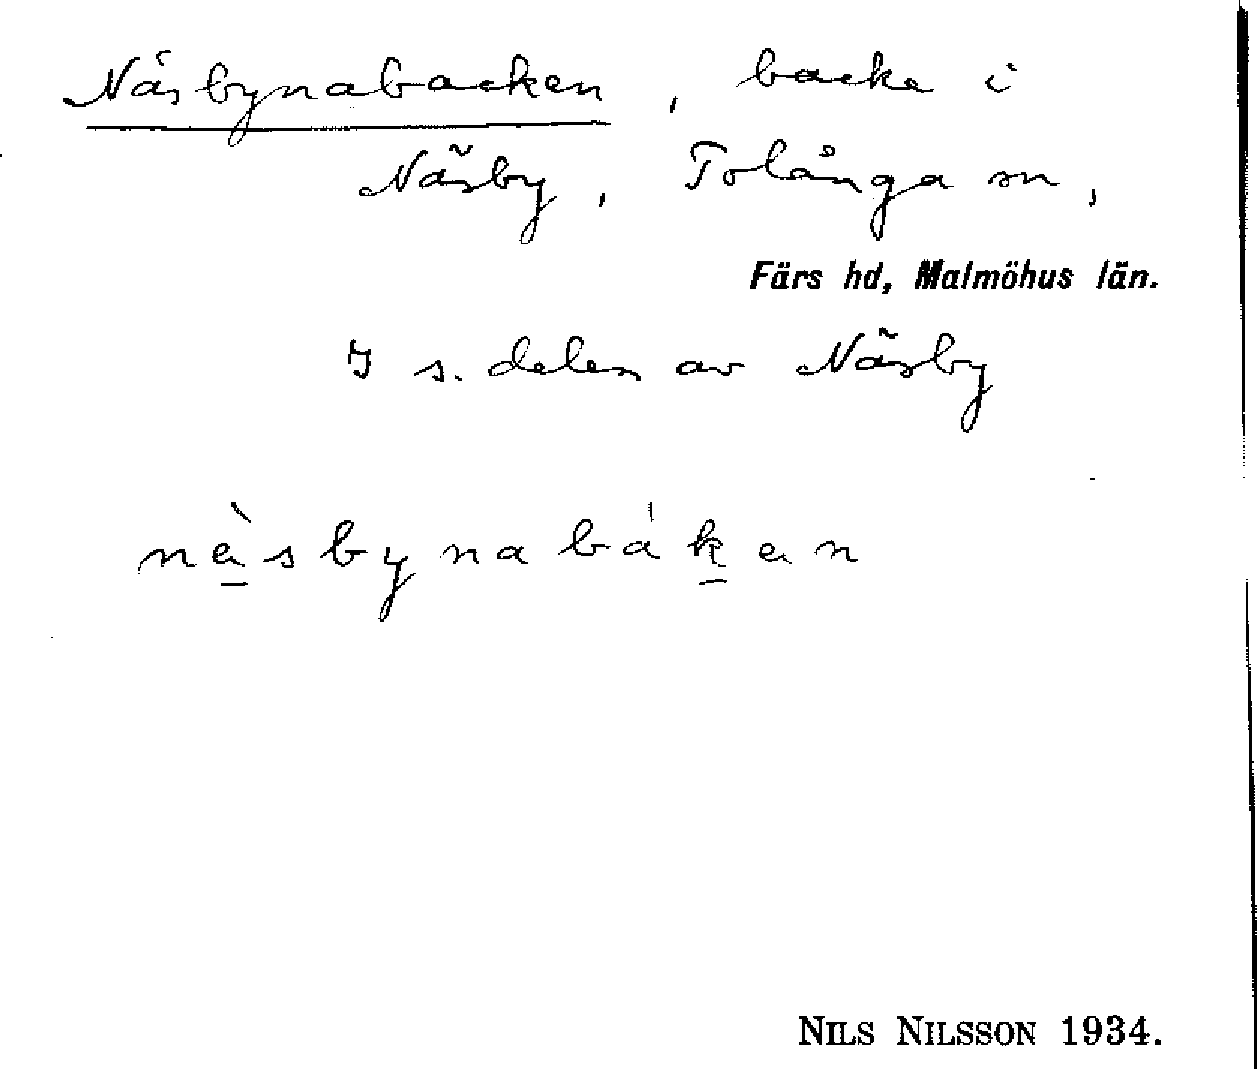 Näsbynabacken, backe i
Näsby, Tolånga sn,
Färs hd, Malmöhus län.
I s. delen av Näsby
nèsbynabáken
NILS NILSSON 1934.